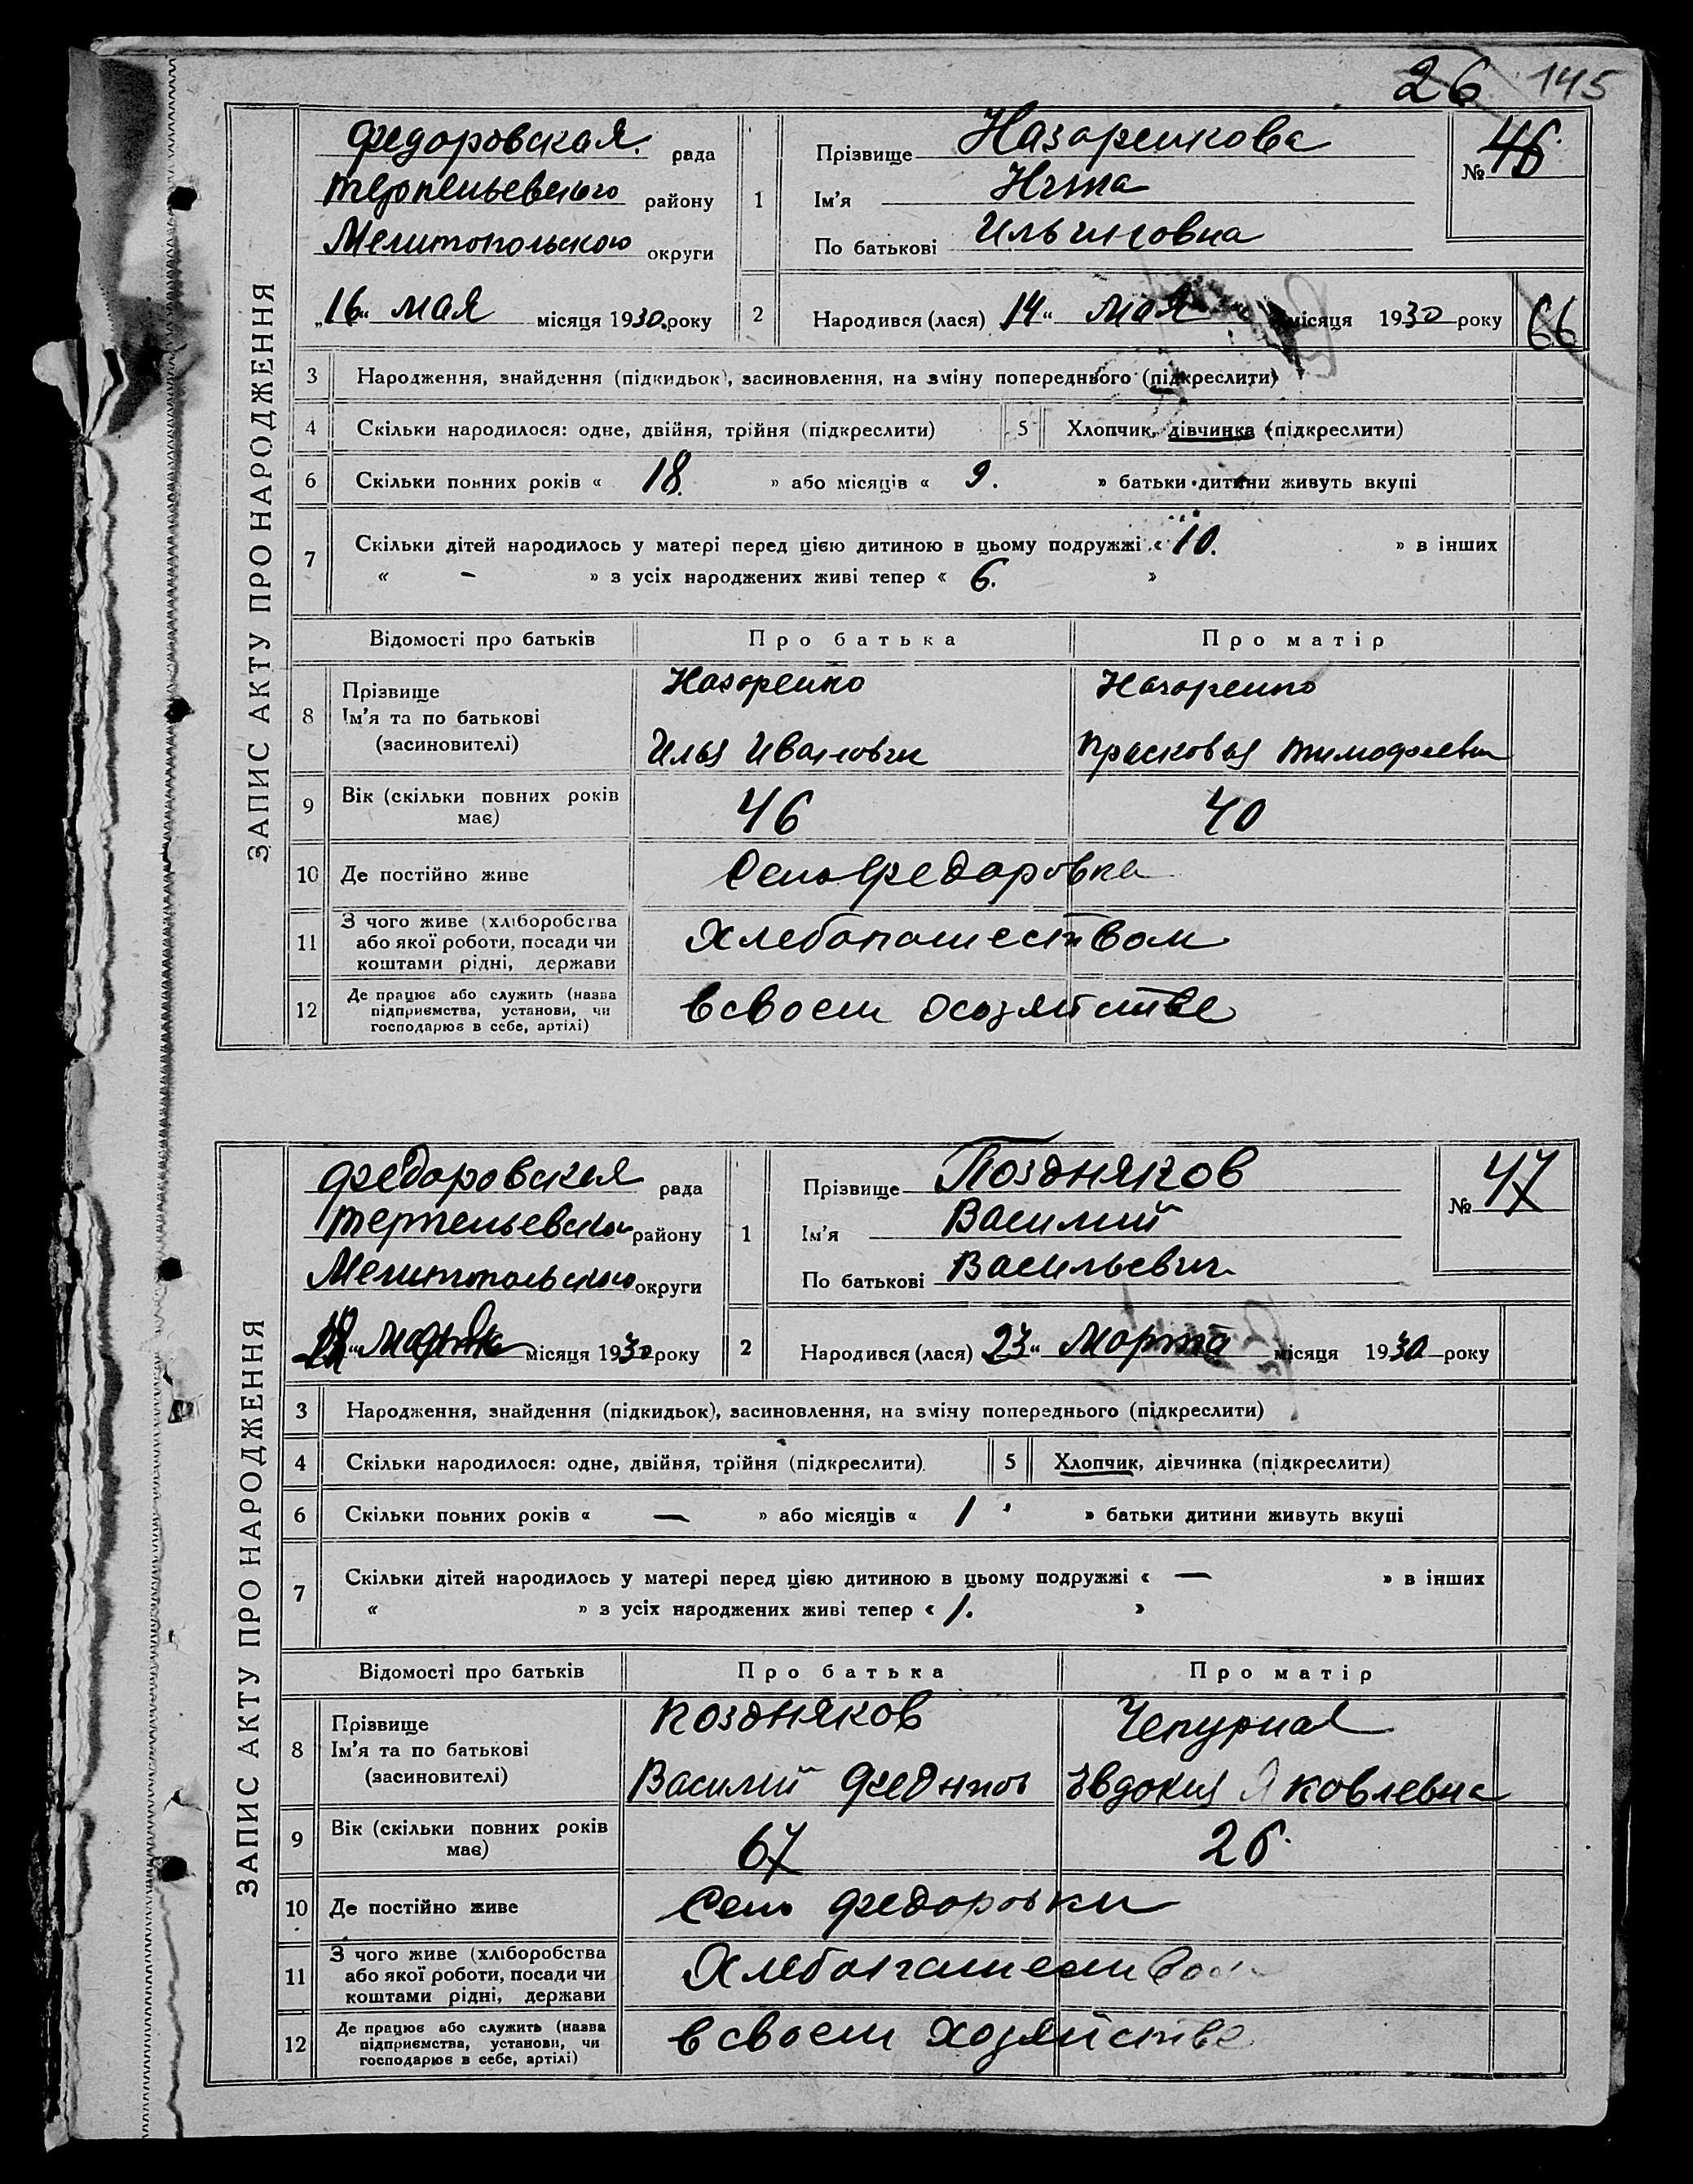 26 145
ЗАПИС АКТУ ПРО НАРОДЖЕННЯ
Федоровская рада
Терпеньевского району
Мелитопольского округи
„16“ мая місяця 1930 року
1 Прізвище Назаренкова
Ім'я Нина
По батькові Ильиновна
№ 46
2 Народився (лася) 14“ мая місяця 1930 року
66
3 Народження, знайдення (підкидьок), засиновлення, на зміну попереднього (підкреслити)
4 Скільки народилося: одне, двійня, трійня (підкреслити) 5 Хлопчик, дівчинка (підкреслити)
6 Скільки повних років « 18. » або місяців « 9. » батьки дитини живуть вкупі
7 Скільки дітей народилось у матері перед цією дитиною в цьому подружжі « 10. » в інших
« - » з усіх народжених живі тепер « 6. »
Відомості про батьків Про батька Про матір
8 Прізвище Назоренко Назоренко
Ім'я та по батькові
(засиновителі) Илья Иванович Прасковья Тимофеевн
9 Вік (скільки повних років має) 46 40
10 Де постійно живе Село Федоровка
11 З чого живе (хліборобства
або якої роботи, посади чи Хлебопашеством
коштами рідні, держави
12 Де працює або служить (назва
підприємства, установи, чи в своем хозяйстве
господарює в себе, артілі)
ЗАПИС АКТУ ПРО НАРОДЖЕННЯ
Федоровская рада
Терпеньевского району
Мелитопольского округи
місяця 1930 року
1 Прізвище Поздняков
Ім'я Василий
По батькові Васильевич
№ 47
2 Народився (лася) 23“ Марта місяця 1930 року
3 Народження, знайдення (підкидьок), засиновлення, на зміну попереднього (підкреслити)
4 Скільки народилося: одне, двійня, трійня (підкреслити) 5 Хлопчик, дівчинка (підкреслити)
6 Скільки повних років « — » або місяців « 1 » батьки дитини живуть вкупі
7 Скільки дітей народилось у матері перед цією дитиною в цьому подружжі « — » в інших
« » з усіх народжених живі тепер « 1. »
Відомості про батьків Про батька Про матір
8 Прізвище Поздняков Чепурная
Ім'я та по батькові
(засиновителі) Василий Евдокия Яковлевна
9 Вік (скільки повних років має) 67 26
10 Де постійно живе Село Федоровки
11 З чого живе (хліборобства
або якої роботи, посади чи Хлебопашеством
коштами рідні, держави
12 Де працює або служить (назва
підприємства, установи, чи в своем хозяйстве
господарює в себе, артілі)